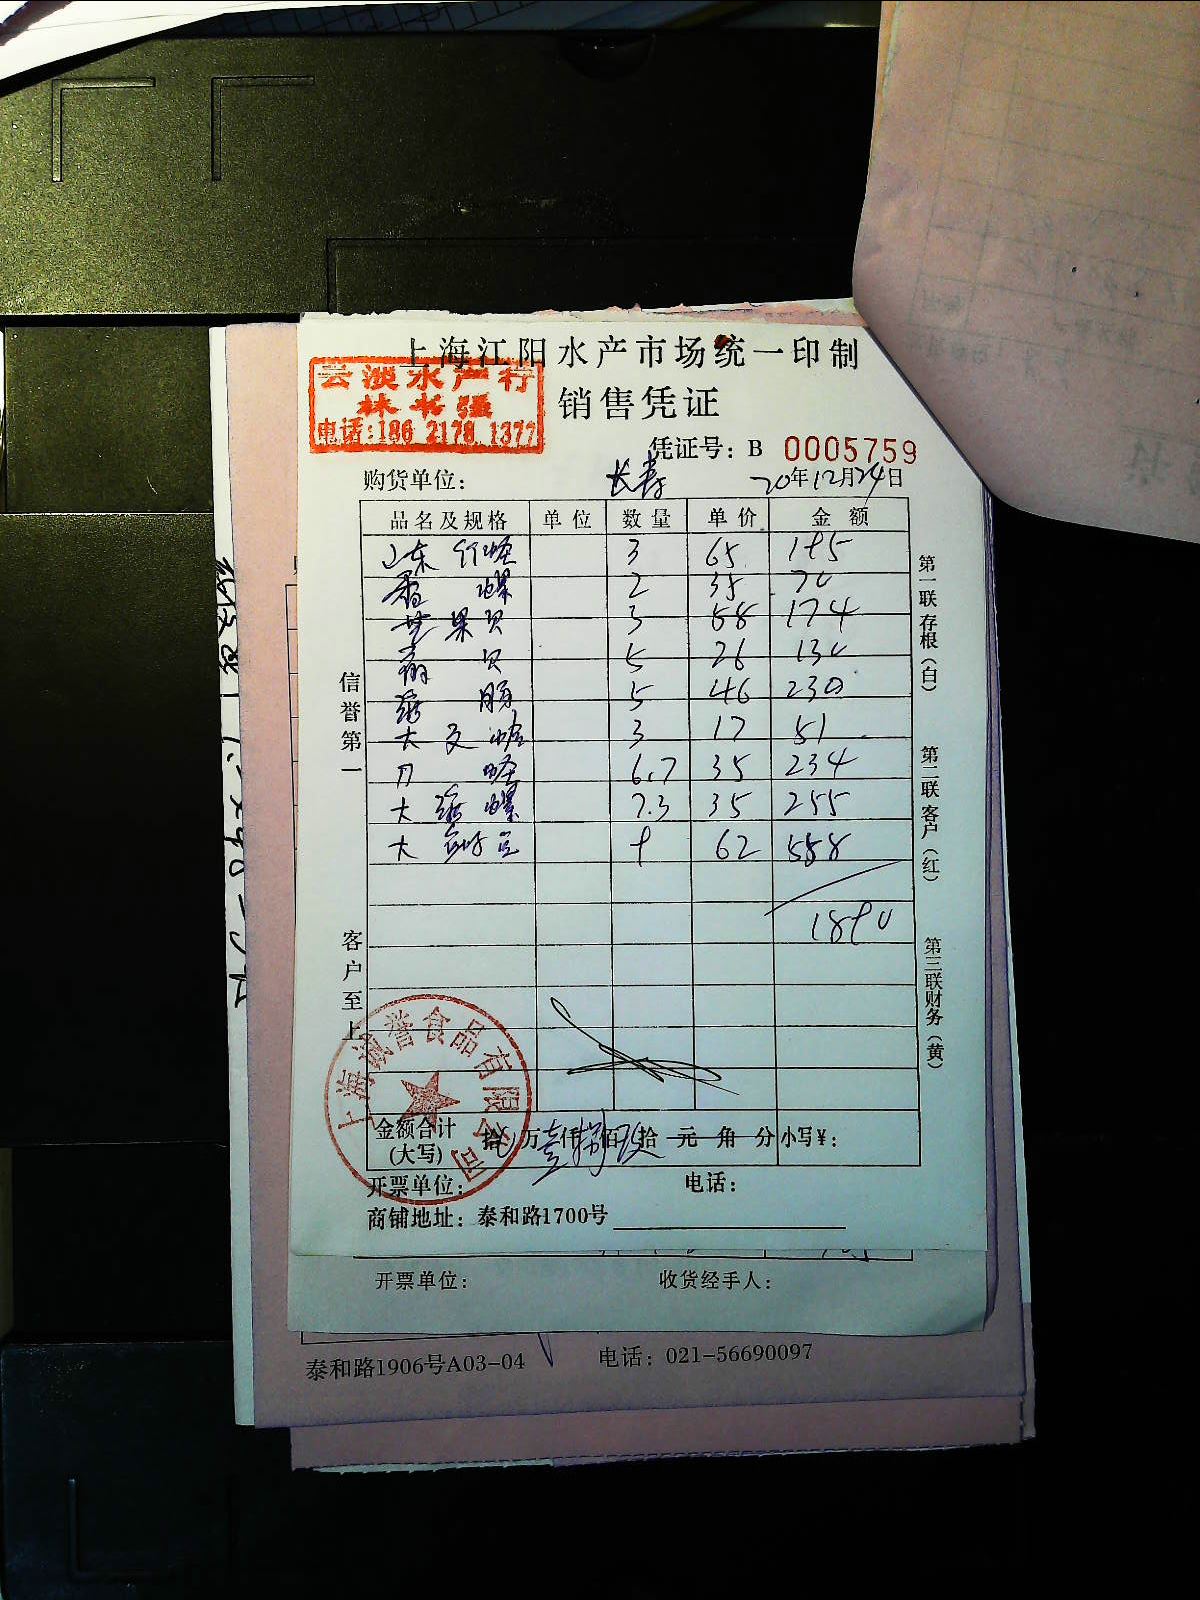 上海江阳水产市场统一印制
云淡水产行
林书强
电话:186 2178 1377
销售凭证
凭证号: B 0005759
购货单位: 长寿 20年12月24日
品名及规格 单位 数量 单价 金额
山东 竹蛏 3 65 195
香螺 2 35 70
苹果贝 3 58 174
扇贝 5 26 130
5 46 230
大文蛤 3 17 51
刀蛏 6.7 35 234
大 螺 7.3 35 255
大 9 62 558
1890
信誉第一
客户至上
第一联存根(白)
第二联客户(红)
第三联财务(黄)
上海诚誉食品有限公司
金额合计(大写) 拾 万壹仟捌佰玖拾 元 角 分 小写¥:
开票单位: 电话:
商铺地址: 泰和路1700号
开票单位: 收货经手人:
泰和路1906号A03-04 电话: 021-56690097